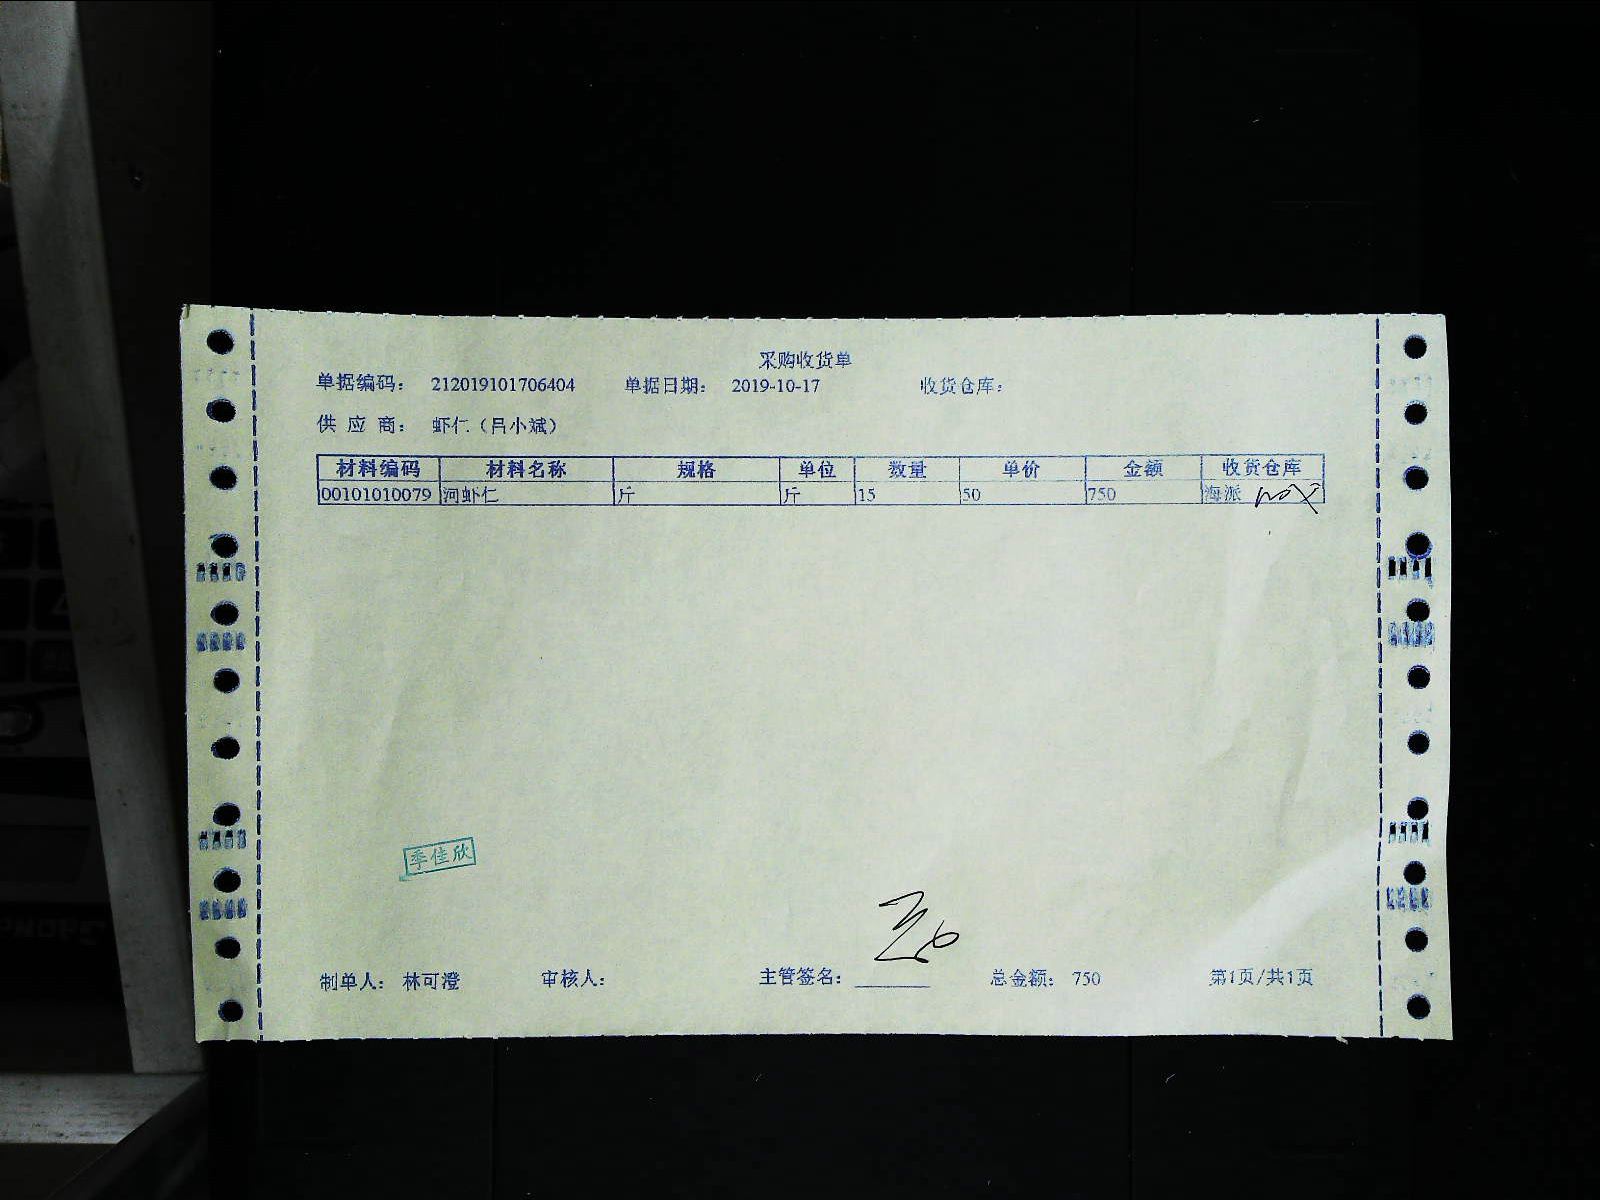 采购收货单
单据编码： 212019101706404 单据日期： 2019-10-17 收货仓库：
供 应 商： 虾仁（吕小斌）
材料编码 材料名称 规格 单位 数量 单价 金额 收货仓库
00101010079 河虾仁 斤 斤 15 50 750 海派
季佳欣
制单人： 林可澄 审核人： 主管签名： 总金额： 750 第1页/共1页